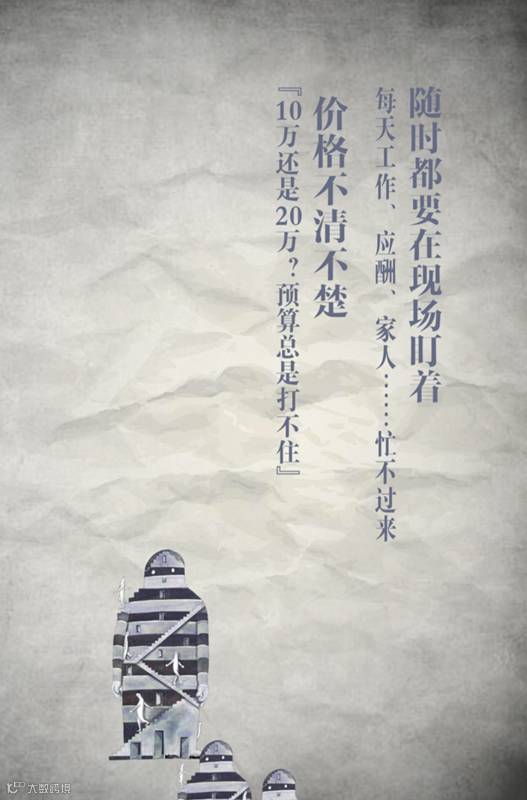 随时都要在现场盯着
每天工作、应酬、家人……忙不过来
价格不清不楚
『10万还是20万？预算总是打不住』
大数跨境